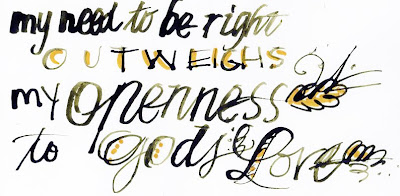 my need to be right
OUTWEIGHS
my openness
to gods Love